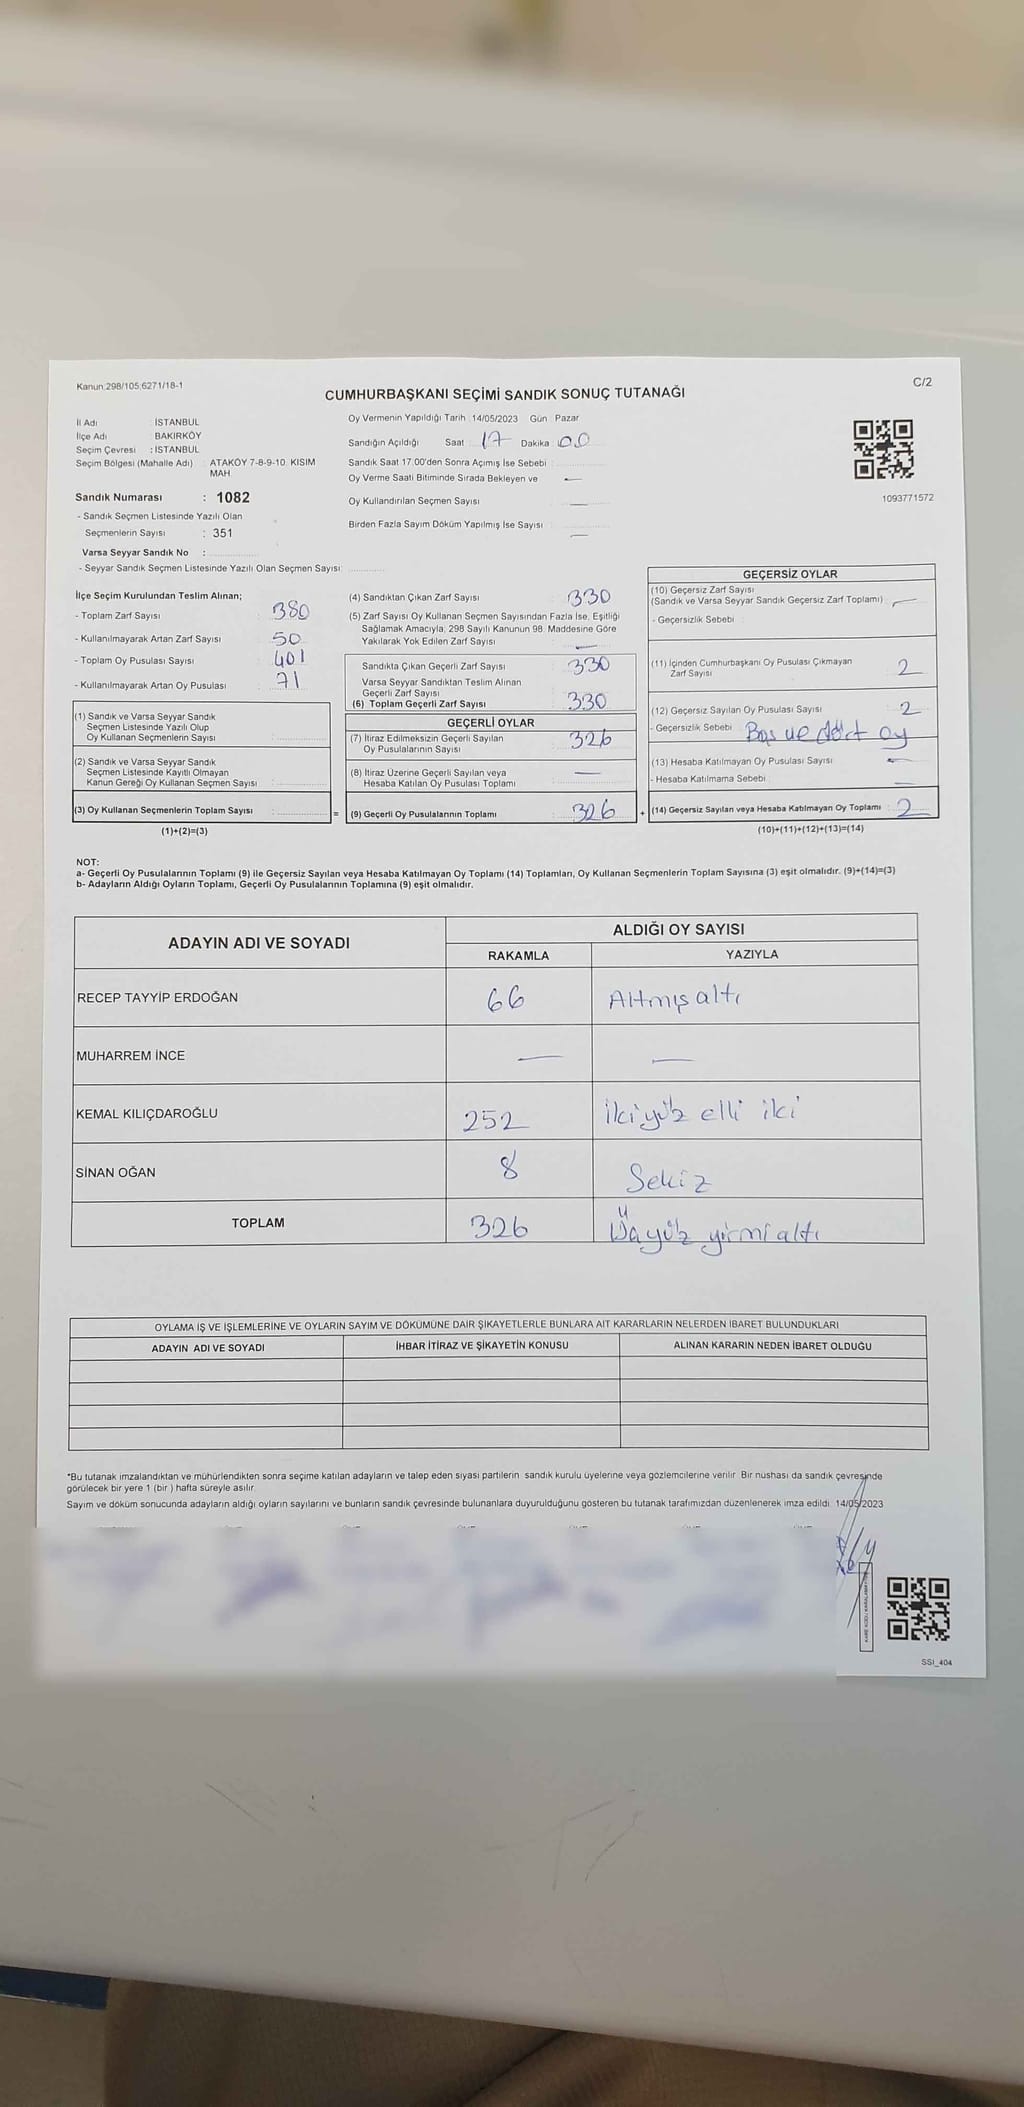 Kanun:298/105;6271/18-1
C/2
CUMHURBAŞKANI SEÇİMİ SANDIK SONUÇ TUTANAĞI
İl Adı İSTANBUL
İlçe Adı BAKIRKÖY
Seçim Çevresi : İSTANBUL
Seçim Bölgesi (Mahalle Adı) ATAKÖY 7-8-9-10. KISIM
MAH.
Sandık Numarası : 1082
- Sandık Seçmen Listesinde Yazılı Olan
Seçmenlerin Sayısı : 351
Varsa Seyyar Sandık No :
- Seyyar Sandık Seçmen Listesinde Yazılı Olan Seçmen Sayısı:
Oy Vermenin Yapıldığı Tarih : 14/05/2023 Gün : Pazar
Sandığın Açıldığı Saat : 17 Dakika : 00
Sandık Saat 17.00'den Sonra Açımış İse Sebebi :
Oy Verme Saati Bitiminde Sırada Bekleyen ve —
Oy Kullandırılan Seçmen Sayısı —
Birden Fazla Sayım Döküm Yapılmış İse Sayısı : —
1093771572
İlçe Seçim Kurulundan Teslim Alınan;
- Toplam Zarf Sayısı : 380
- Kullanılmayarak Artan Zarf Sayısı : 50
- Toplam Oy Pusulası Sayısı : 401
- Kullanılmayarak Artan Oy Pusulası : 71
(1) Sandık ve Varsa Seyyar Sandık
Seçmen Listesinde Yazılı Olup
Oy Kullanan Seçmenlerin Sayısı :
(2) Sandık ve Varsa Seyyar Sandık
Seçmen Listesinde Kayıtlı Olmayan
Kanun Gereği Oy Kullanan Seçmen Sayısı :
(3) Oy Kullanan Seçmenlerin Toplam Sayısı :
(1)+(2)=(3)
(4) Sandıktan Çıkan Zarf Sayısı : 330
(5) Zarf Sayısı Oy Kullanan Seçmen Sayısından Fazla İse, Eşitliği
Sağlamak Amacıyla; 298 Sayılı Kanunun 98. Maddesine Göre
Yakılarak Yok Edilen Zarf Sayısı : —
Sandıkta Çıkan Geçerli Zarf Sayısı : 330
Varsa Seyyar Sandıktan Teslim Alınan
Geçerli Zarf Sayısı
(6) Toplam Geçerli Zarf Sayısı : 330
GEÇERLİ OYLAR
(7) İtiraz Edilmeksizin Geçerli Sayılan
Oy Pusulalarının Sayısı : 326
(8) İtiraz Üzerine Geçerli Sayılan veya
Hesaba Katılan Oy Pusulası Toplamı : —
= (9) Geçerli Oy Pusulalarının Toplamı : 326
GEÇERSİZ OYLAR
(10) Geçersiz Zarf Sayısı
(Sandık ve Varsa Seyyar Sandık Geçersiz Zarf Toplamı) : —
- Geçersizlik Sebebi :
(11) İçinden Cumhurbaşkanı Oy Pusulası Çıkmayan
Zarf Sayısı : 2
(12) Geçersiz Sayılan Oy Pusulası Sayısı : 2
- Geçersizlik Sebebi : Boş ve dört oy
(13) Hesaba Katılmayan Oy Pusulası Sayısı : —
- Hesaba Katılmama Sebebi : —
+ (14) Geçersiz Sayılan veya Hesaba Katılmayan Oy Toplamı : 2
(10)+(11)+(12)+(13)=(14)
NOT:
a- Geçerli Oy Pusulalarının Toplamı (9) ile Geçersiz Sayılan veya Hesaba Katılmayan Oy Toplamı (14) Toplamları, Oy Kullanan Seçmenlerin Toplam Sayısına (3) eşit olmalıdır. (9)+(14)=(3)
b- Adayların Aldığı Oyların Toplamı, Geçerli Oy Pusulalarının Toplamına (9) eşit olmalıdır.
ADAYIN ADI VE SOYADI ALDIĞI OY SAYISI
RAKAMLA YAZIYLA
RECEP TAYYİP ERDOĞAN 66 Altmış altı
MUHARREM İNCE — —
KEMAL KILIÇDAROĞLU 252 İkiyüz elli iki
SİNAN OĞAN 8 Sekiz
TOPLAM 326 Üçyüz yirmi altı
OYLAMA İŞ VE İŞLEMLERİNE VE OYLARIN SAYIM VE DÖKÜMÜNE DAİR ŞİKAYETLERLE BUNLARA AİT KARARLARIN NELERDEN İBARET BULUNDUKLARI
ADAYIN ADI VE SOYADI İHBAR İTİRAZ VE ŞİKAYETİN KONUSU ALINAN KARARIN NEDEN İBARET OLDUĞU
*Bu tutanak imzalandıktan ve mühürlendikten sonra seçime katılan adayların ve talep eden siyasi partilerin sandık kurulu üyelerine veya gözlemcilerine verilir. Bir nüshası da sandık çevresinde
görülecek bir yere 1 (bir ) hafta süreyle asılır.
Sayım ve döküm sonucunda adayların aldığı oyların sayılarını ve bunların sandık çevresinde bulunanlara duyurulduğunu gösteren bu tutanak tarafımızdan düzenlenerek imza edildi. 14/05/2023
SSI_404